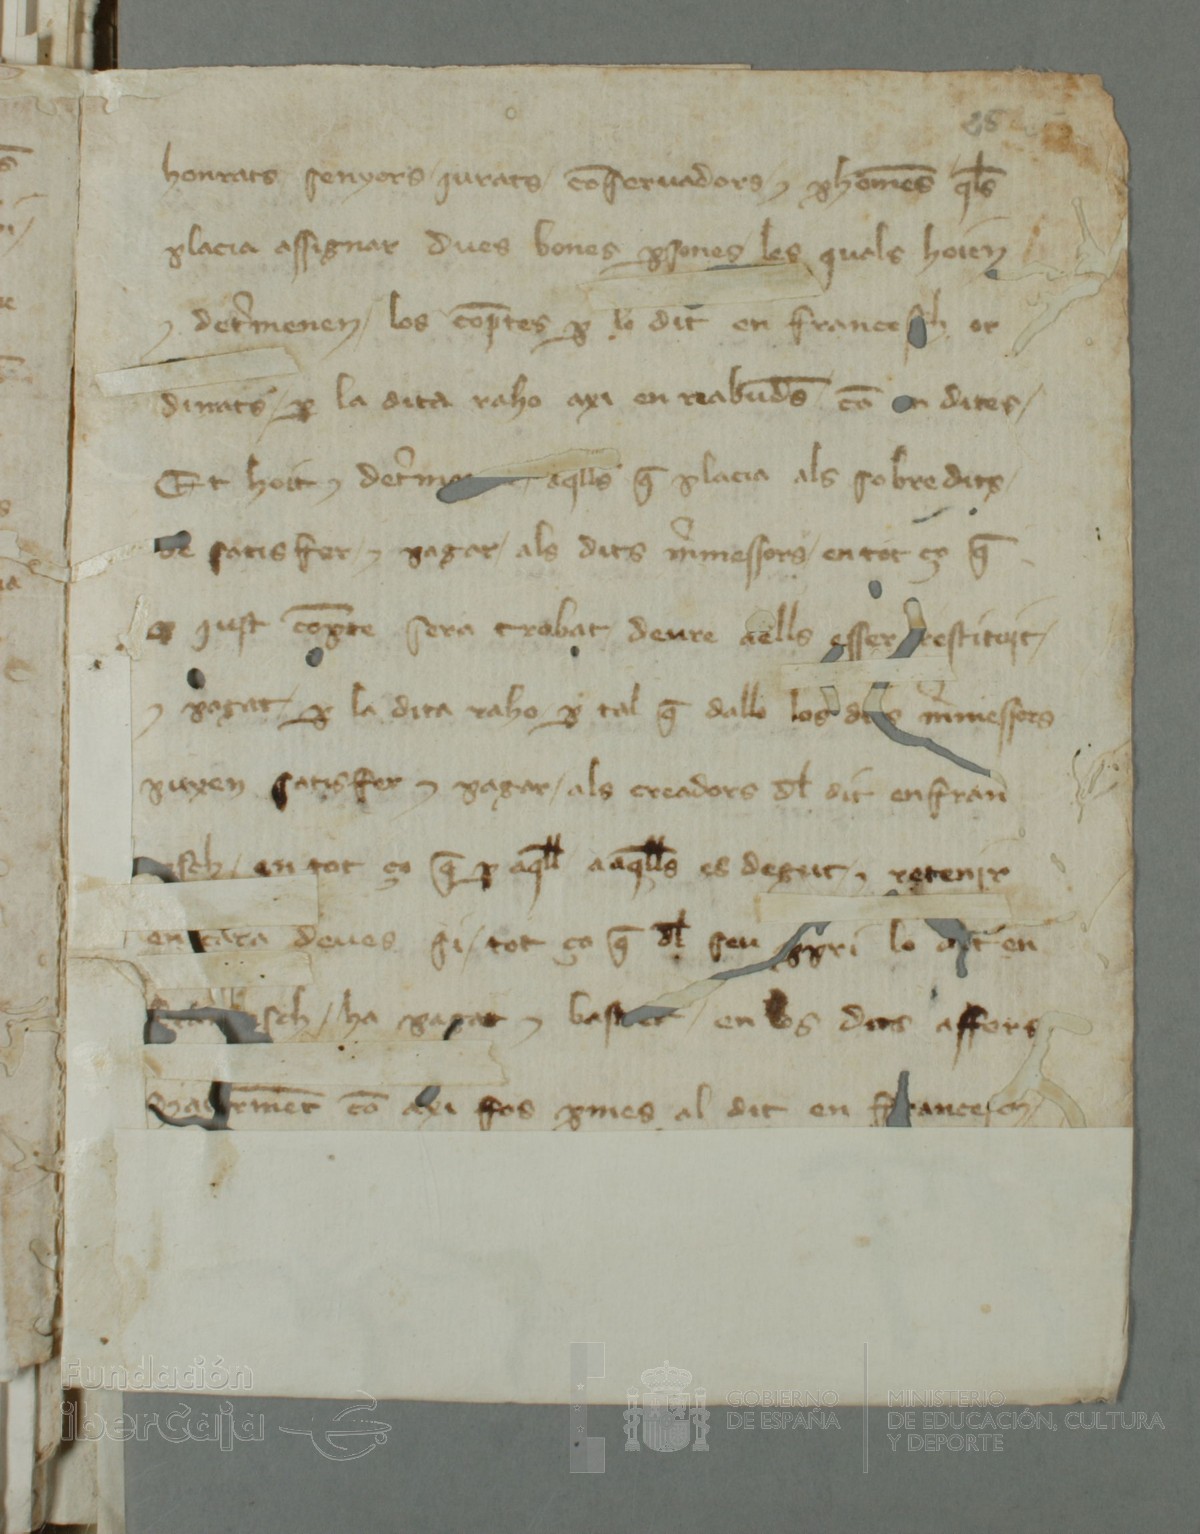 28
honrats senyors / jurats / co̅seruadors / ⁊ ꝓhome̅s q̅ls
placia assignar dues bones ꝑsones / les quals hoien
⁊ det̉menen / los co̅ptes ꝑ lo dit en francesch or
dinats / ꝑ la dita raho axi en reabud̅s co̅ en dites /
Et hoit ⁊ aq̅lls q̅ placia als sobredits /
de satisfer / ⁊ pagar / als dits m̉messors / en tot ço q̅
just co̅pte sera trobat deure aells esser restituit /
⁊ pagat / ꝑ la dita raho ꝑ tal q̅ dallo los dits m̉messors
puxen satisfer ⁊ pagar / als creadors d̅l dit en fran
sch / en tot ço q̅ ꝑ aq̅ll aaq̅lls es degut / ⁊ retenir
en cara deues si / tot ço q̅ d̅l seu ꝓpri lo dit en
sch / ha pagat ⁊ en los dits affers
co̅ axi fos ꝓmes al dit en francesch /
Fundación
iberCaja
GOBIERNO
DE ESPAÑA
MINISTERIO
DE EDUCACIÓN, CULTURA
Y DEPORTE